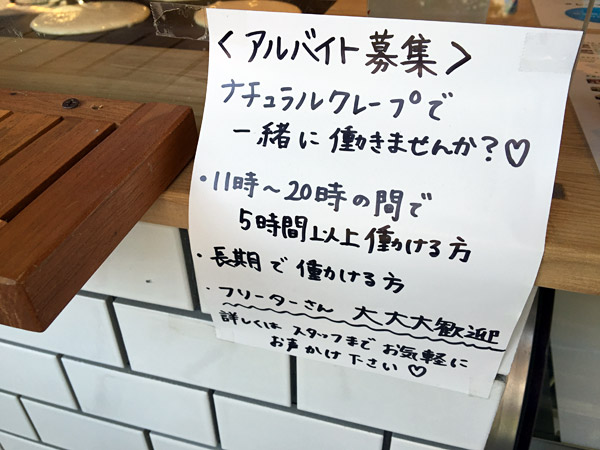 ＜アルバイト募集＞
ナチュラルクレープで
一緒に働きませんか？♡
・11時～20時の間で
5時間以上働ける方
・長期で働ける方
・フリーターさん 大大大歓迎
詳しくは スタッフまで お気軽に
お声かけ下さい♡